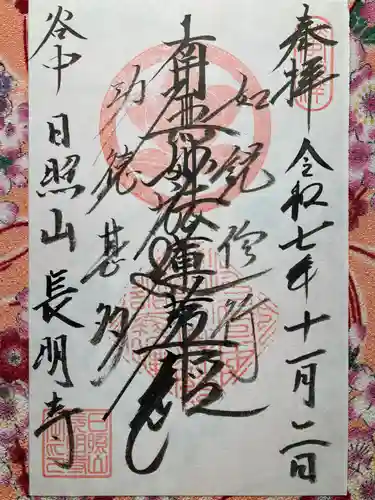 奉拝
令和七年十一月二日
如説修行
南無妙法蓮華経
功徳甚多
谷中
日照山 長明寺